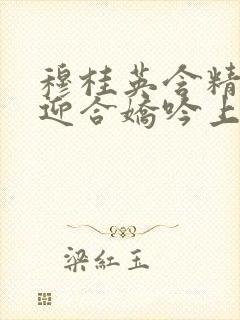 穆桂英含精
迎合嬌吟上
梁紅玉